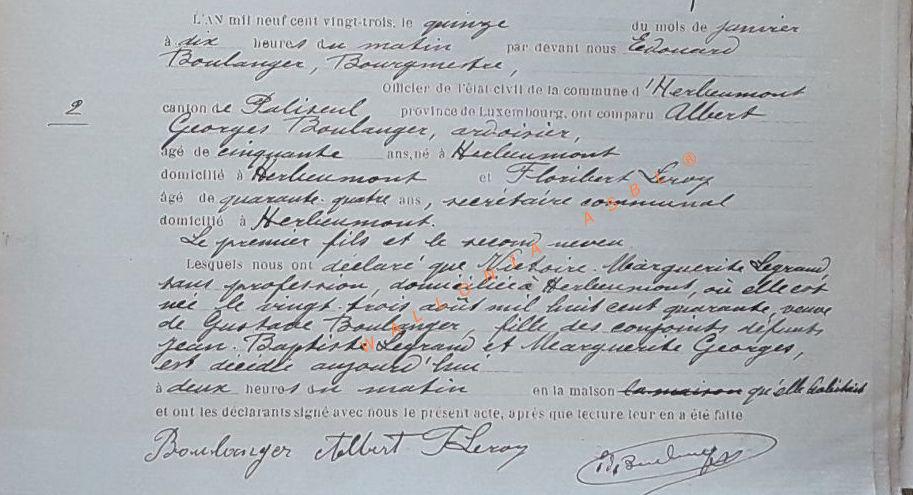 L'AN mil neuf cent vingt-trois, le quinze du mois de janvier
à dix heures du matin par devant nous Edouard
Boulanger, Bourgmestre,
Officier de l'état civil de la commune d'Herbeumont
2
canton de Paliseul province de Luxembourg, ont comparu Albert
Georges Boulanger, ardoisier,
âgé de cinquante ans, né à Herbeumont
domicilié à Herbeumont et Floribert Leroy
âgé de quarante-quatre ans, secrétaire communal
domicilié à Herbeumont.
Le premier fils et le second neveu
Lesquels nous ont déclaré que Victoire Marguerite Legrand,
sans profession, domiciliée à Herbeumont, où elle est
née le vingt trois août mil huit cent quarante, veuve
de Gustave Boulanger, fille des conjoints défunts
Jean-Baptiste Legrand et Marguerite Georges,
est décédée aujourd'hui
à deux heures du matin en la maison la maison qu'elle habitait
et ont les déclarants signé avec nous le présent acte, après que lecture leur en a été faite
Boulanger Albert F Leroy Ed Boulanger
WALLONIA ASBL ®